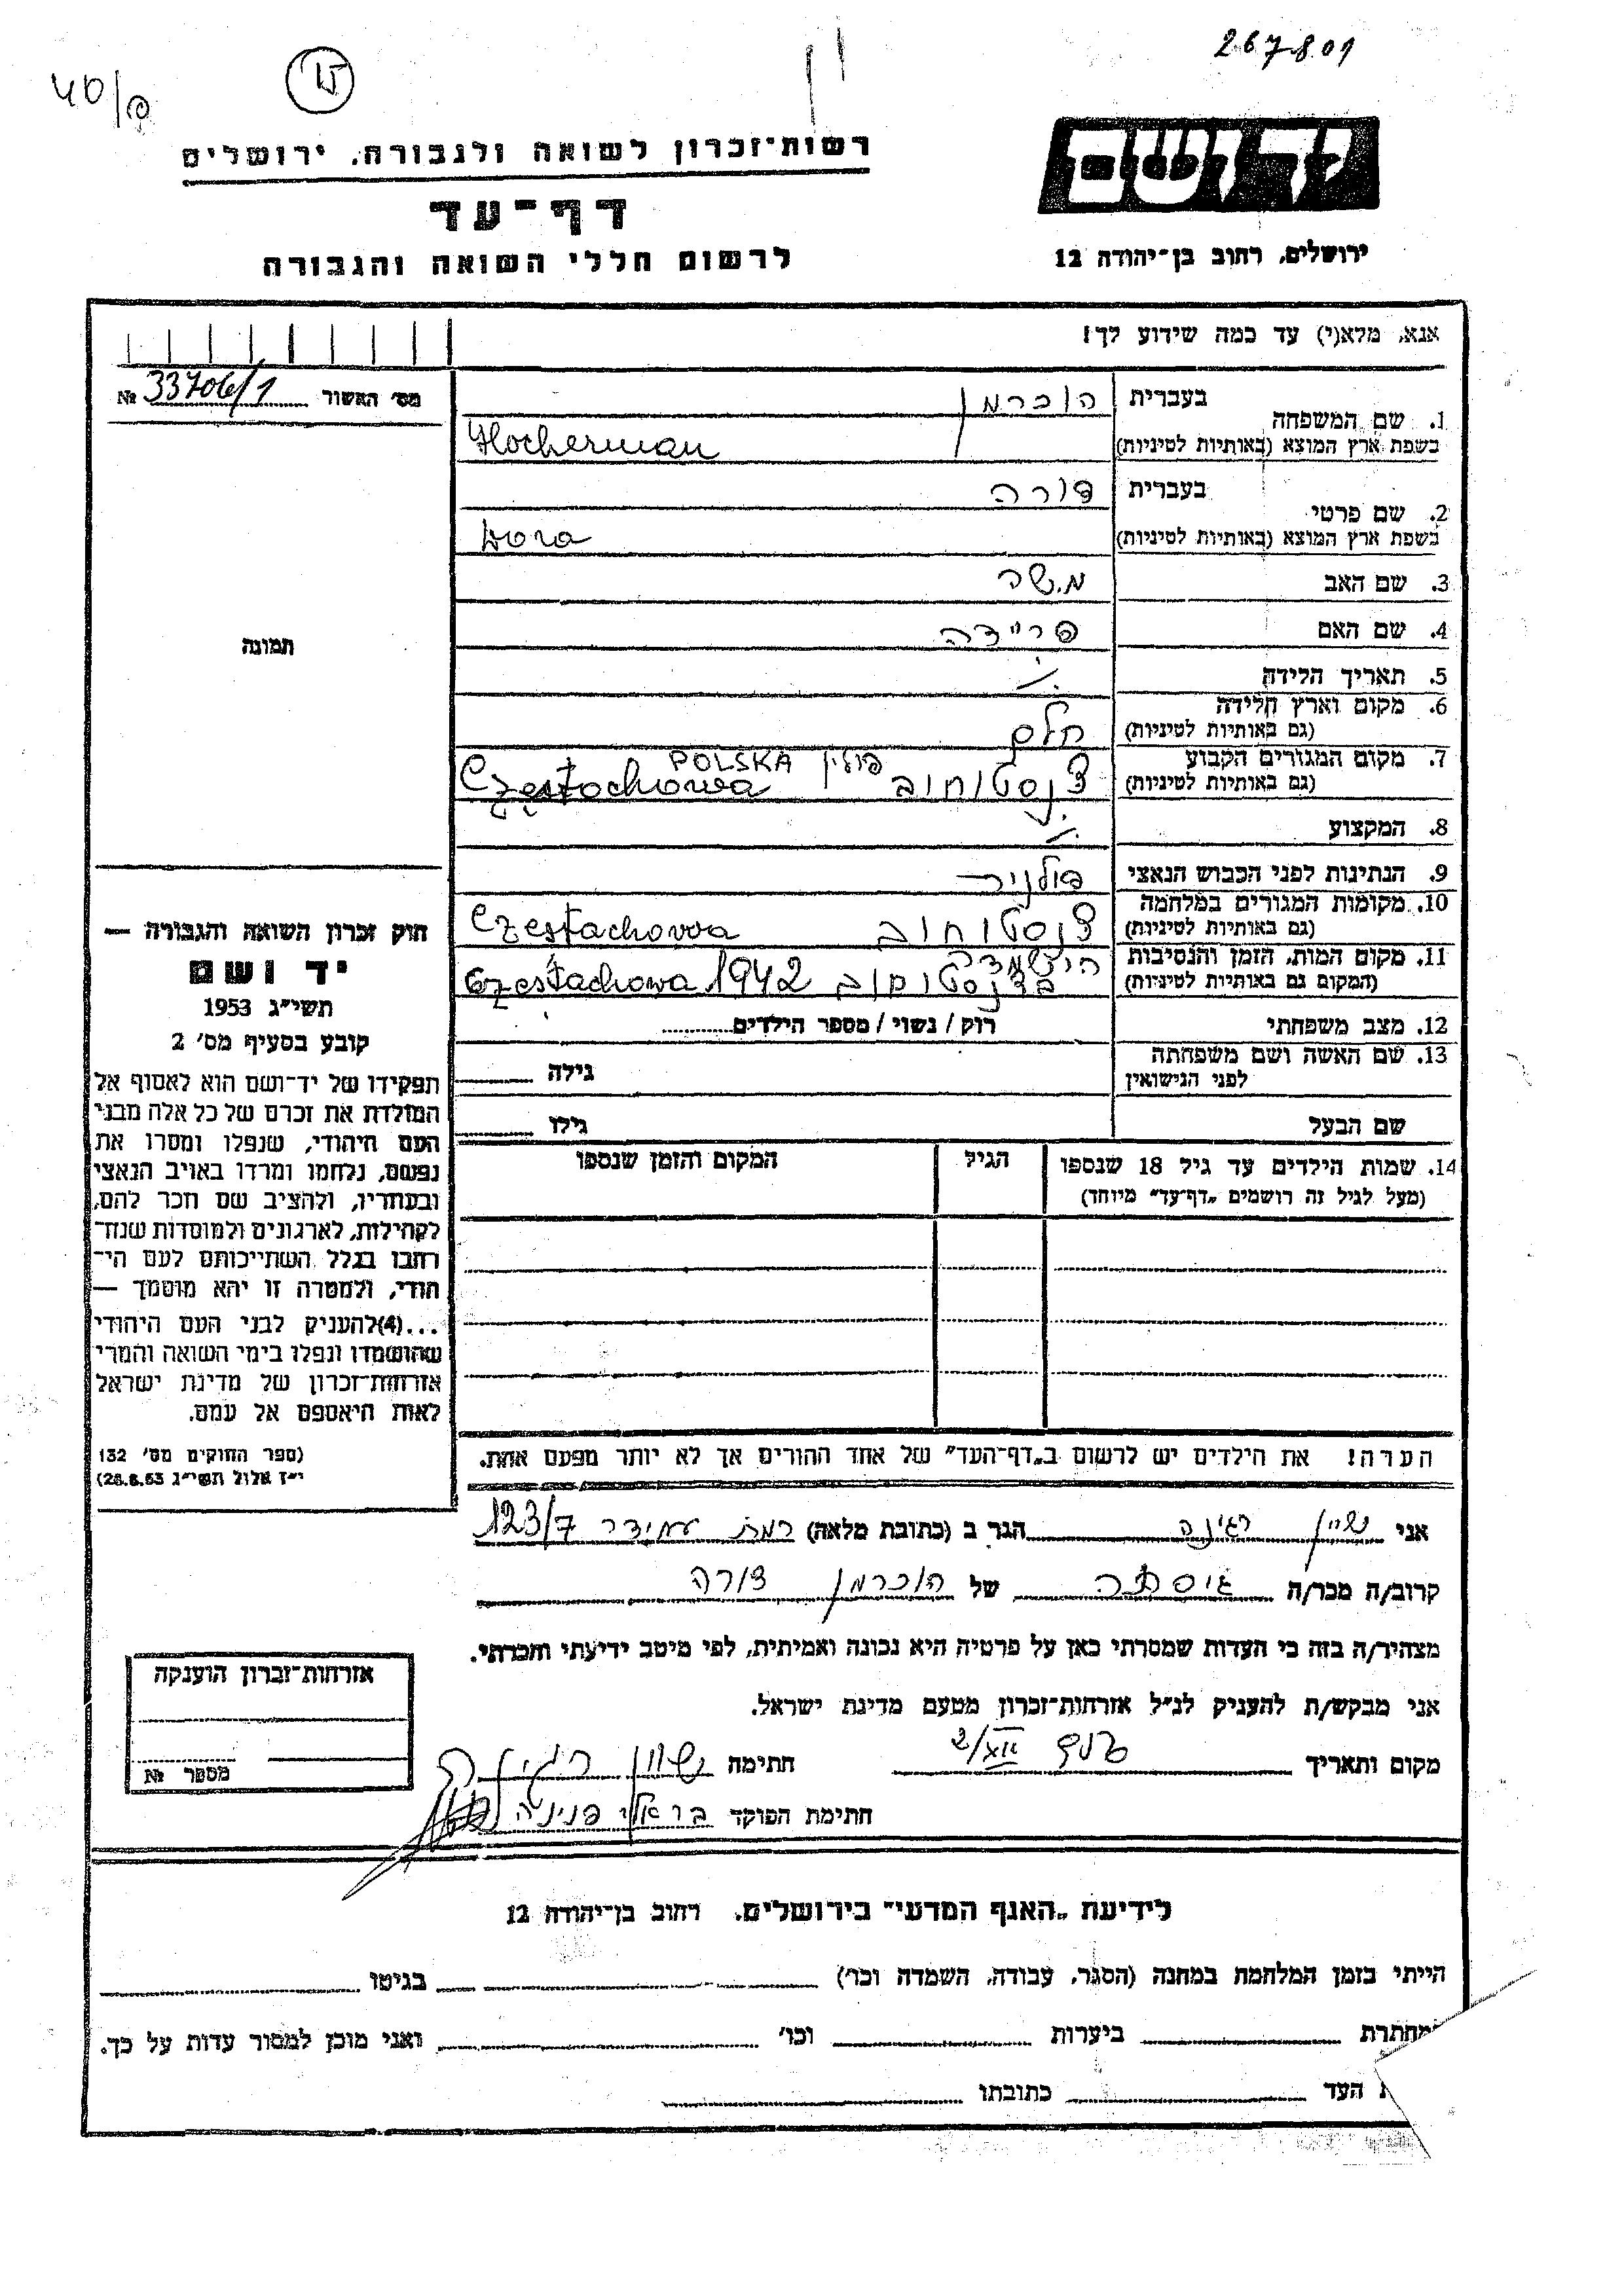 267801
40/
רשות־זכרון לשואה ולגבורה, ירושלים
דף־עד
לרשום חללי השואה והגבורה
יד ושם
ירושלים, רחוב בן־יהודה 12
אנא, מלא(י) עד כמה שידוע לך!
מס׳ האשור 33706/1 №
תמונה
1. שם המשפחה בעברית הוכרמן
בשפת ארץ המוצא (באותיות לטיניות) Hocherman
2. שם פרטי בעברית דורה
בשפת ארץ המוצא (באותיות לטיניות) Dora
3. שם האב משה
4. שם האם פריידה
5. תאריך הלידה
6. מקום וארץ הלידה חלם
(גם באותיות לטיניות) פולין POLSKA
7. מקום המגורים הקבוע צ'נסטוחוב Częstochowa
(גם באותיות לטיניות)
8. המקצוע
9. הנתינות לפני הכבוש הנאצי פולנית
10. מקומות המגורים במלחמה צ'נסטוחוב Częstachowa
(גם באותיות לטיניות)
11. מקום המות, הזמן והנסיבות
(המקום גם באותיות לטיניות) בצ'נסטוחוב Częstachowa 1942
12. מצב משפחתי רוק / נשוי / מספר הילדים
13. שם האשה ושם משפחתה
לפני הנישואין גילה
שם הבעל גילו
14. שמות הילדים עד גיל 18 שנספו הגיל המקום והזמן שנספו
(מעל לגיל זה רושמים „דף־עד” מיוחד)
הערה! את הילדים יש לרשום ב„דף־העד” של אחד ההורים אך לא יותר מפעם אחת.
חוק זכרון השואה והגבורה —
יד ושם
תשי״ג 1953
קובע בסעיף מס׳ 2
תפקידו של יד־ושם הוא לאסוף אל
המולדת את זכרם של כל אלה מבני
העם היהודי, שנפלו ומסרו את
נפשם, נלחמו ומרדו באויב הנאצי
ובעוזריו, ולהציב שם וזכר להם,
לקהילות, לארגונים ולמוסדות שנח־
רבו בגלל השתייכותם לעם הי־
הודי, ולמטרה זו יהא מוסמך —
...(4)להעניק לבני העם היהודי
שהושמדו ונפלו בימי השואה והמרי
אזרחות־זכרון של מדינת ישראל
לאות היאספם אל עמם.
(ספר החוקים מס׳ 132
י״ז אלול תשי״ג 28.8.53)
אני רגינה הגר ב (כתובת מלאה) רמת עמידר 123/7
קרוב/ה מכר/ה גיסתה של הוכרמן דורה
מצהיר/ה בזה כי העדות שמסרתי כאן על פרטיה היא נכונה ואמיתית, לפי מיטב ידיעתי והכרתי.
אני מבקש/ת להעניק לנ״ל אזרחות־זכרון מטעם מדינת ישראל.
מקום ותאריך חתימה
חתימת הפוקד פנינה
אזרחות־זכרון הוענקה
מספר №
לידיעת „האגף המדעי” בירושלים, רחוב בן־יהודה 12
הייתי בזמן המלחמה במחנה (הסגר, עבודה, השמדה וכו׳) בגיטו
במחתרת ביערות וכו׳ ואני מוכן למסור עדות על כך.
העד כתובתו